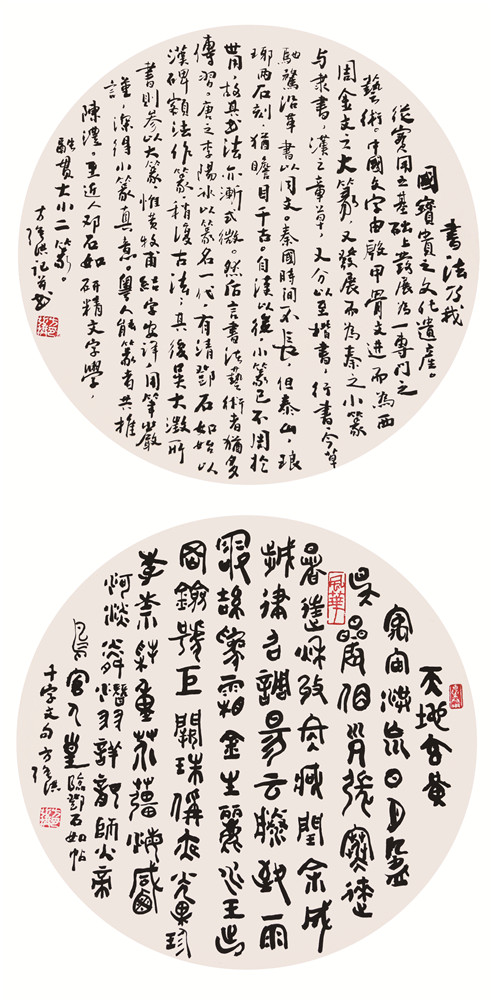 書法乃我
國寶貴之文化遺產。
從實用之基礎上發展為一專門之
藝術。中國文字由殷甲骨文進而為西
周金文之大篆，又發展而為秦之小篆
与隶書，漢之章草，又分以至楷書，行書，今草
馳騖沿革書以同文。秦國時间不長，但泰山，琅
琊两石刻，猶瞻目千古。自漢以後，小篆已不用於
世用，故其书法亦漸式微。然后言書法藝術者猶多
傳習。唐之李陽冰以篆名一代，有清鄧石如始以
漢碑額法作篆，稍復古法，其後吴大澂所
書則参以大篆，惟黄牧甫結字安详，用筆嚴
謹，深得小篆真意。粤人能篆者共推
陳澧。至近人邓石如研精文字學，
融贯大小二篆。
方 洪记
天地玄黄
宇宙洪荒日月盈
昃辰宿列張寒來
風華
暑往秋收冬藏閏余成
歲律吕調陽云騰致雨
露結為霜金生麗水玉出
崑岡劍號巨闕珠稱夜光果珍
李柰菜重芥薑海鹹
河淡鱗潛羽翔龍師火帝
鳥官人皇 臨鄧石如帖
千字文句 方 洪